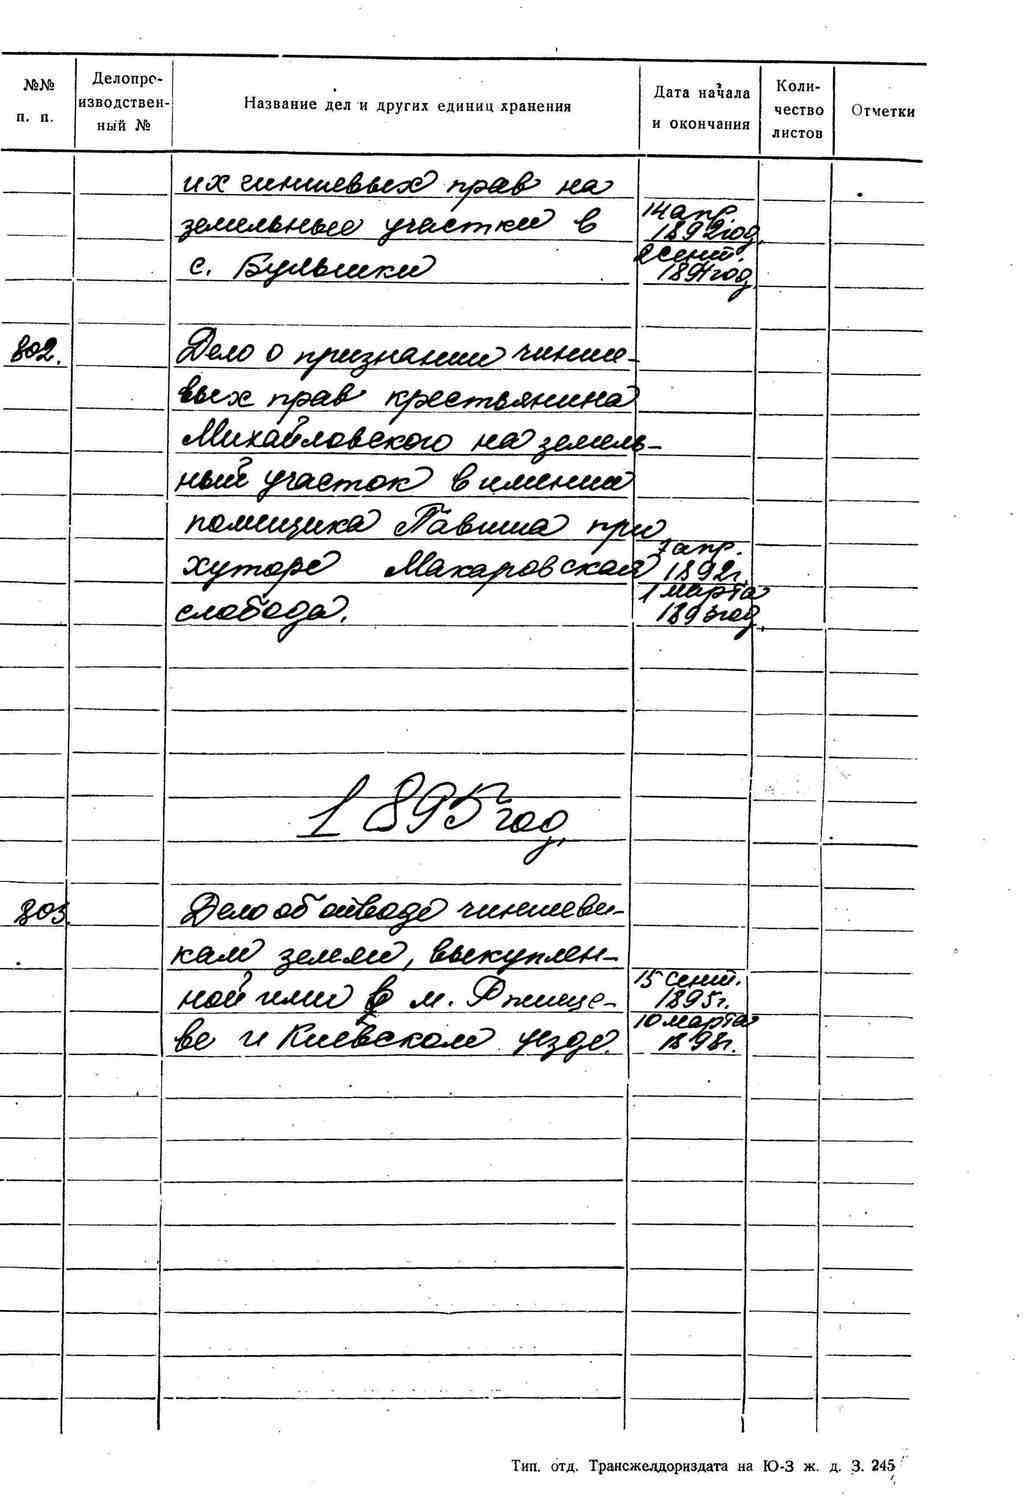 №№ п. п. Делопро-изводствен-ный № Название дел и других единиц хранения Дата начала и окончания Коли-чество листов Отметки
их чиншевых прав на
земельные участки в 14 апр. 1892 год,
с. Бульшки 2 сент. 1894 год.
802. Дело о признании чинше-
вых прав крестьянина
Михайловского на земель-
ный участок в имении
помещика при
хуторе Макаровская 7 апр. 1892г.
слобода. 1 марта год,
1895 год,
803. Дело об отводе чиншеви-
кам земли, выкуплен-
ной ими в м. Ржище- 15 сент. 1895г.
ве и Киевском уезде. 10 марта 1898г.
Тип. отд. Трансжелдориздата на Ю-З ж. д. З. 245